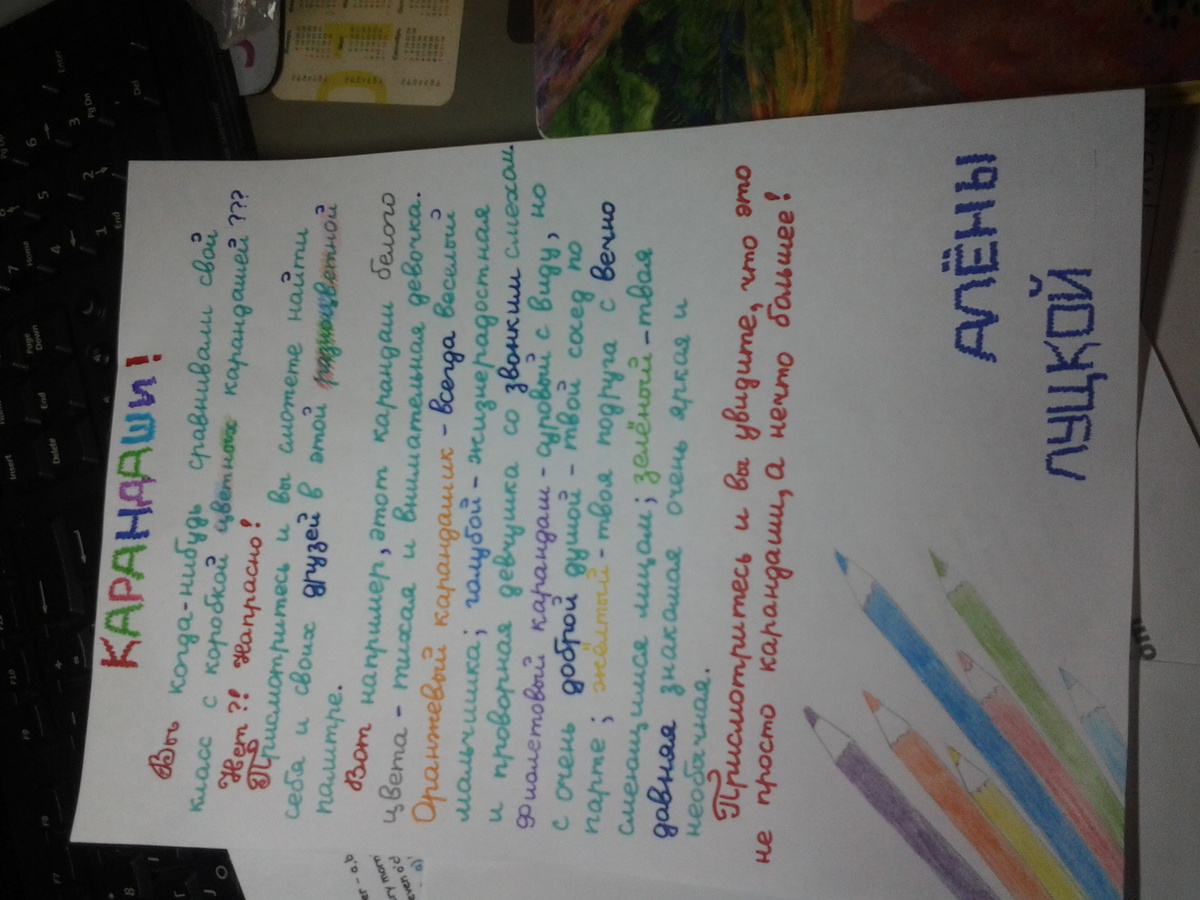 КАРАНДАШИ!
Вы когда-нибудь сравнивали свой
класс с коробкой цветных карандашей???
Нет?! Напрасно!
Присмотритесь и вы сможете найти
себя и своих друзей в этой разноцветной
палитре.
Вот например, этот карандаш белого
цвета - тихая и внимательная девочка.
Оранжевый карандашик - всегда весёлый
мальчишка; голубой - жизнерадостная
и проворная девчушка со звонким смехом.
фиолетовый карандаш - суровый с виду, но
с очень доброй душой - твой сосед по
парте; жёлтый - твоя подруга с вечно
смеющимся лицом; зелёный - твая
давняя знакомая очень яркая и
необычная.
Присмотритесь и вы увидите, что это
не просто карандаши, а нечто большее!
АЛЁНЫ
ЛУЦКОЙ
Insert
Delete
Home
End
Page Down
Pg Up
Pg Dn
Enter
Del
End
Home
7
4
1
5
2
6
3
F7
F8
F9
F10